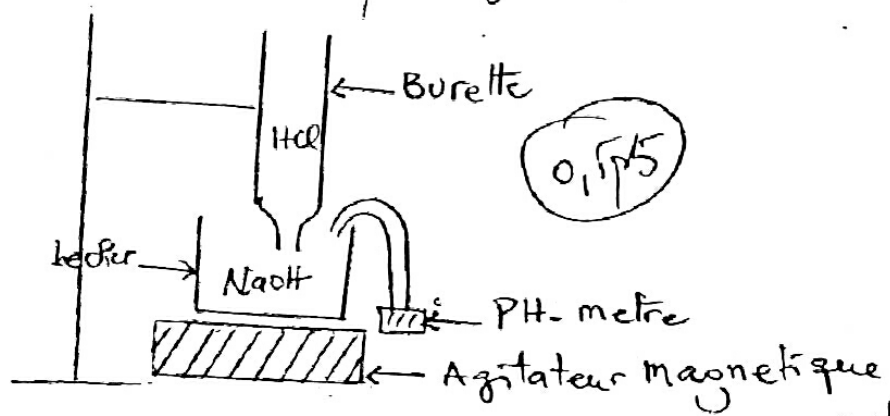 Burette
HCl
0,5pts
becher
NaOH
PH-metre
Agitateur magnetique